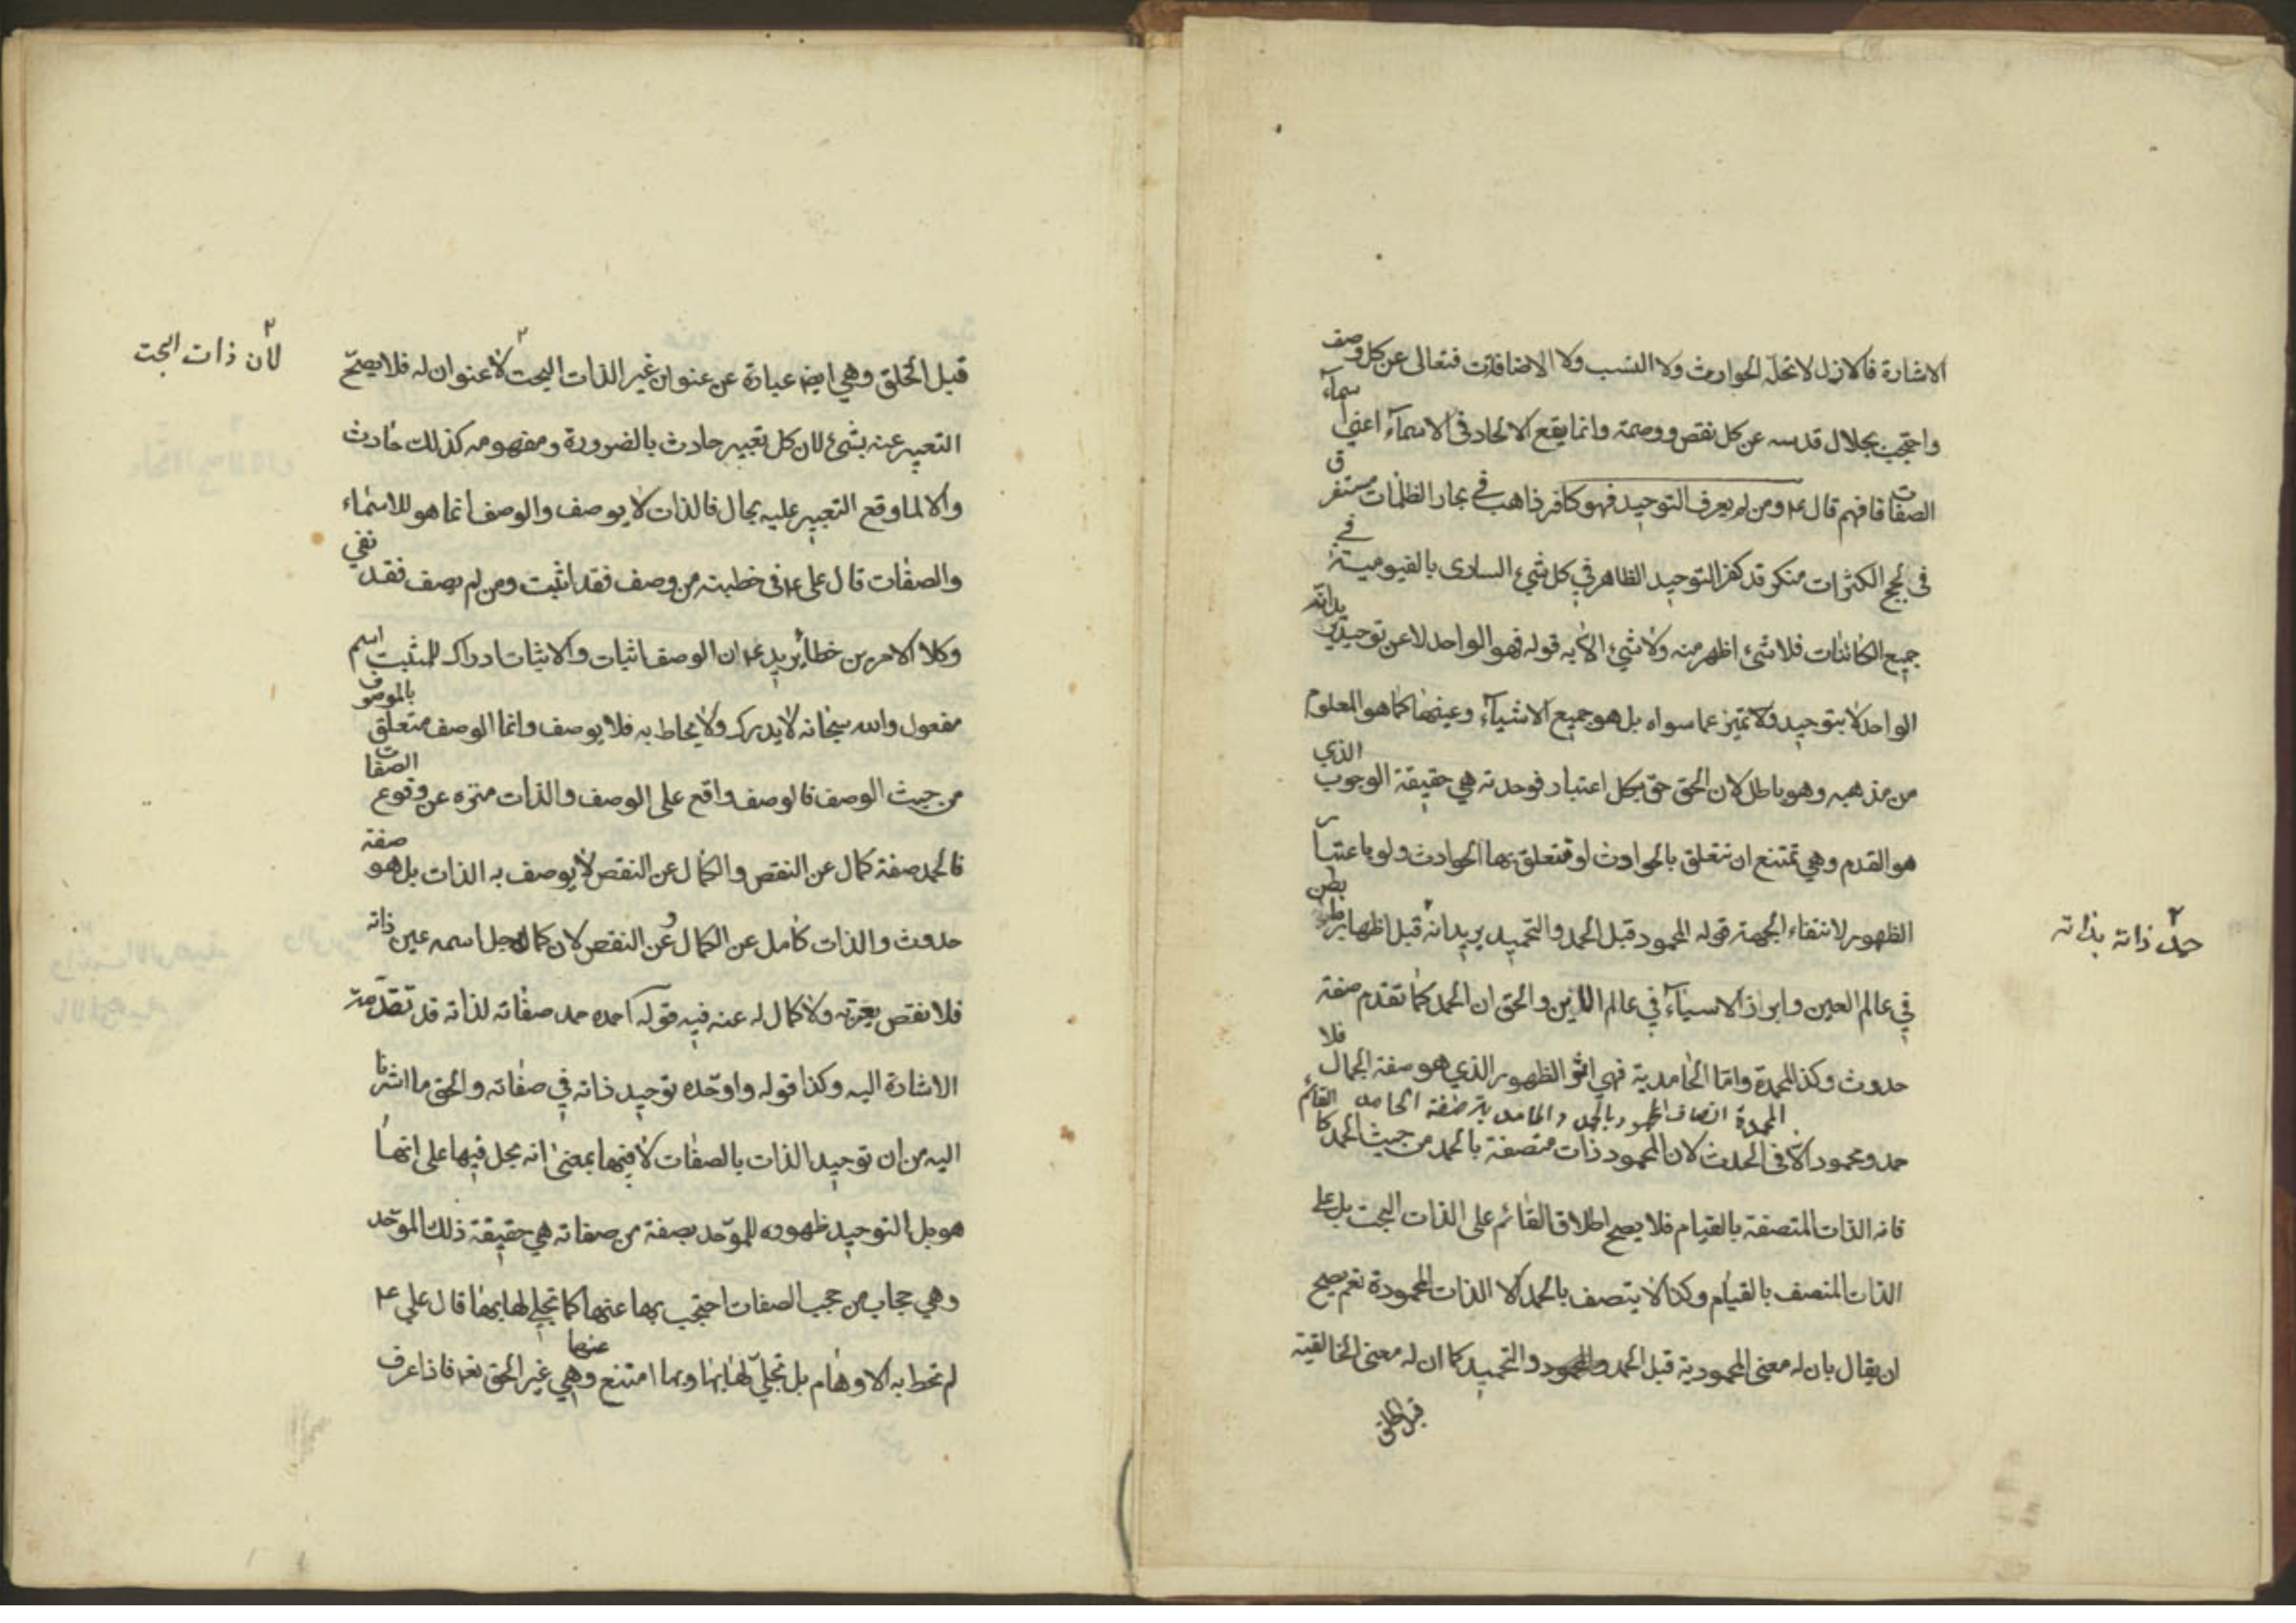 الاشارة فالازل لا تحلّه الحوادث ولا النسب ولا الاضافات فتعالى عن كل وصف
واحتجب بجلال قدسه عن كل نقص ووصمة وانما يقع الالحاد فى الاسمآء اعنى اسمآء
الصفات فافهم قال ع ومن لم يعرف التوحيد فهو كافر ذاهب في بحار الظلمات مستغرق
فى لجج الكثرات منكر قد كفر التوحيد الظاهر في كل شيء السارى بالقيومية في
جميع الكائنات فلا شىء اظهر منه ولا شيء الا به قوله فهو الواحد لا عن توحيد يريد انه
الواحد لا بتوحيد ولا تميّز عما سواه بل هو جميع الاشيآء وعينها كما هو المعلوم
من مذهبه وهو باطل لان الحق حق بكل اعتبار فوحدته هي حقيقة الوجوب الذي
هو القدم وهي تمتنع ان تتعلق بالحوادث او تتعلق بها الحوادث ولو باعتبار
الظهور لانتفاء الجهة قوله المحمود قبل الحمد والتحميد يريد انه ٢ قبل اظهار بطن
٢ حمد ذاته بذاته
في عالم العين وابراز الاشيآء في عالم والحق ان الحمد كما تقدم صفة
حدوث وكذا المحمدة واما الحامدية فهي اثر الظهور الذي هو صفة الجمال فلا
المحمدة اتصاف المحمود بالحمد والحامدية صفة الحامد القائم
حمد ومحمود الا فى الحدث لان المحمود ذات متصفة بالحمد من حيث الحمد كا
فانه الذات المتصفة بالقيام فلا يصح اطلاق القائم على الذات البحت بل على
الذات المتصف بالقيام وكذا لا يتصف بالحمد الا الذات المحمودة نعم يصح
ان يقال بان له معنى المحمودية قبل الحمد والتحميد كما ان له معنى الخالقية
قبل الخلق
قبل الخلق وهي ايضا عبارة عن عنوان غير الذات البحت ٢ لا عنوان له فلا يصحّ
٢ لان ذات البحت
التعبير عنه بشىء لان كل تعبير حادث بالضرورة ومفهومه كذلك حادث
والا لما وقع التعبير عليه بحال فالذات لا يوصف والوصف انما هو للاسماء
والصفات قال على ع فى خطبته من وصف فقد اثبت ومن لم يصف فقد نفي
وكلا الامرين خطأ يريد ع ان الوصف اثبات والاثبات ادراك للمثبت اسم
مفعول والله سبحانه لا يدرك ولا يحاط به فلا يوصف وانما الوصف متعلق بالموصوف
من حيث الوصف فالوصف واقع على الوصف والذات منزه عن وقوع الصفات
فالحمد صفة كمال عن النقص والكمال عن النقص لا يوصف به الذات بل هو صفة
حدوث والذات كامل عن الكمال وعن النقص لان كمال جل اسمه عين ذاته
فلا نقص يعتريه ولا كمال له عنه فيه قوله احمده حمد صفاته لذاته قد تقدّمت
الاشارة اليه وكذا قوله واوحّده توحيد ذاته في صفاته والحق ما اشرنا
اليه من ان توحيد الذات بالصفات لا فيها بمعنى انه يحل فيها على انها
هو بل التوحيد ظهوره للموّحد بصفة من صفاته هي حقيقة ذلك الموّحد
وهي حجاب من حجب الصفات احتجب بها عنها كما تجلى لها بها قال علي ع
لم تحط به الاوهام بل تجلىّ لها بها وبها امتنع عنها وهي غير الحق نعم فاذا عرف